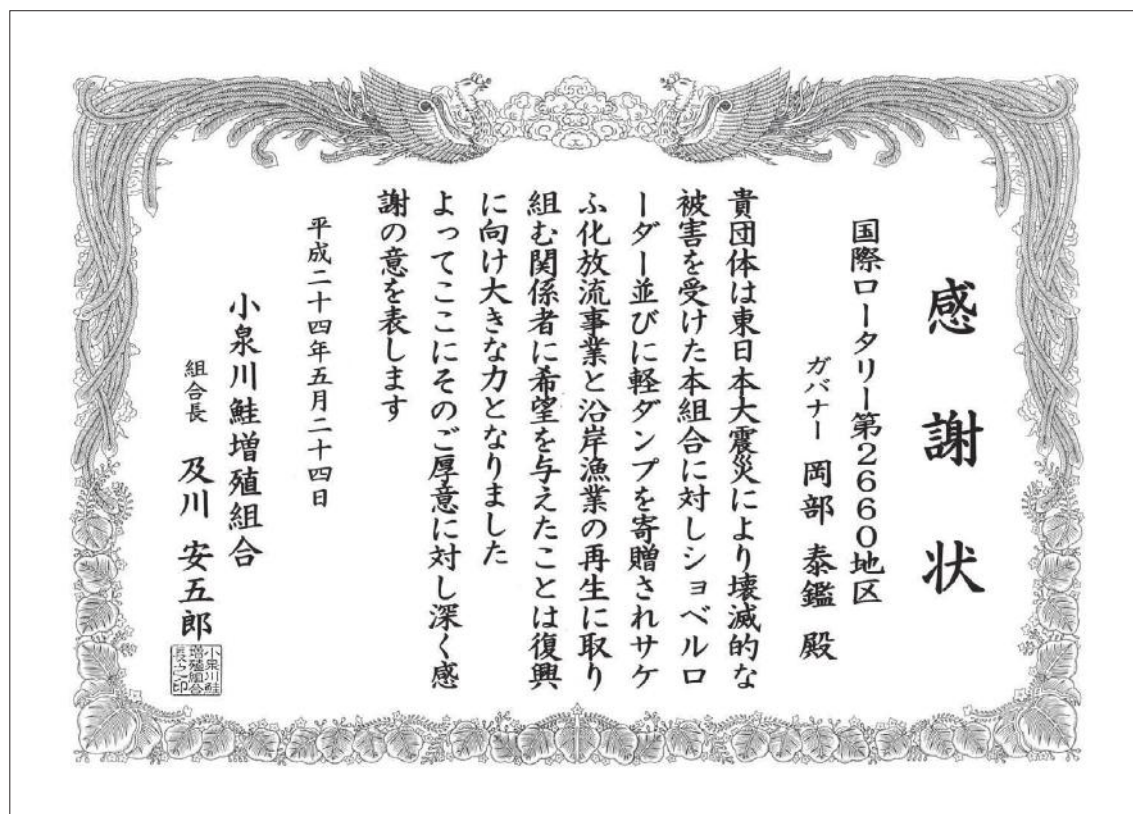 感謝状
国際ロータリー第2660地区
ガバナー 岡部 泰鑑 殿
貴団体は東日本大震災により壊滅的な
被害を受けた本組合に対しショベルロ
ーダー並びに軽ダンプを寄贈されサケ
ふ化放流事業と沿岸漁業の再生に取り
組む関係者に希望を与えたことは復興
に向け大きな力となりました
よってここにそのご厚意に対し深く感
謝の意を表します
平成二十四年五月二十四日
小泉川鮭増殖組合
組合長 及川 安五郎
小泉川鮭
増殖組合
長之印